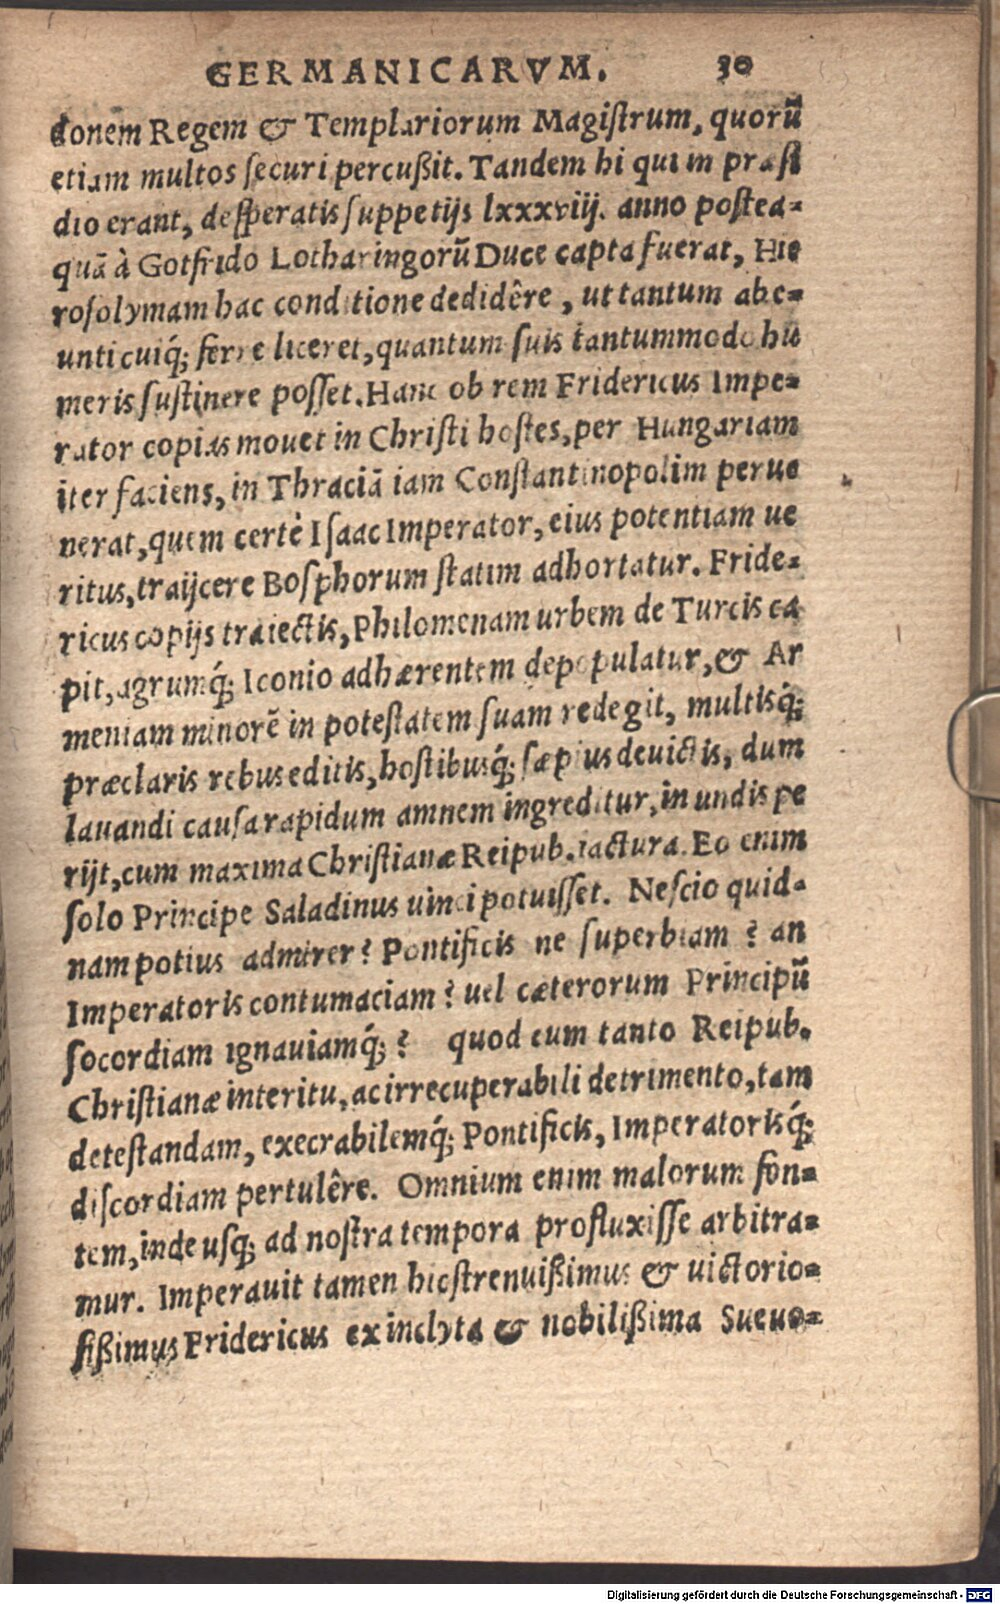 GERMANICARVM. 30
donem Regem & Templariorum Magiſtrum, quorū
etiam multos ſecuri percußit. Tandem hi qui in præſi
dio erant, deſperatis ſuppetijs lxxxviij. anno poſtea-
quā à Gotfrido Lotharingorū Duce capta fuerat, Hie
roſolymam hac conditione dedidêre, ut tantum abe-
unti cuiq́; ferre liceret, quantum ſuis tantummodo hu
meris ſuſtinere poſſet. Hanc ob rem Fridericus Impe-
rator copias mouet in Chriſti hoſtes, per Hungariam
iter faciens, in Thraciā iam Conſtantinopolim perue
nerat, quem certè Iſaac Imperator, eius potentiam ue
ritus, traijcere Boſphorum ſtatim adhortatur. Fride-
ricus copijs traiectis, Philomenam urbem de Turcis ca
pit, agrumq́; Iconio adhærentem depopulatur, & Ar
meniam minorē in poteſtatem ſuam redegit, multisq́;
præclaris rebus editis, hoſtibusq́; ſæpius deuictis, dum
lauandi cauſa rapidum amnem ingreditur, in undis pe
rijt, cum maxima Chriſtianæ Reipub. iactura. Eo enim
ſolo Principe Saladinus uinci potuiſſet. Neſcio quid-
nam potius admirer? Pontificis ne ſuperbiam? an
Imperatoris contumaciam? uel cæterorum Principū
ſocordiam ignauiamq́;? quod cum tanto Reipub.
Chriſtianæ interitu, ac irrecuperabili detrimento, tam
deteſtandam, execrabilemq́; Pontificis, Imperatorisq́;
diſcordiam pertulêre. Omnium enim malorum fon-
tem, inde uſq; ad noſtra tempora profluxiſſe arbitra-
mur. Imperauit tamen hic ſtrenuißimus & uictorio-
ſißimus Fridericus ex inclyta & nobilißima Sueuo-
Digitalisierung gefördert durch die Deutsche Forschungsgemeinschaft - DFG